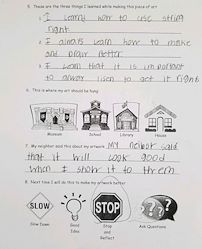 5. These are the three things I learned while making this piece of art
1. I learned how to use string
right
2. I always learn how to make
and draw better
3. I learn that it is important
to always listen to get it right
6. This is where my art should be hung
Museum School Library House
7. My neighbor said this about my artwork My neibor said
that it will look good
when I show it to threm
8. Next time I will do this to make my artwork better
SLOW
STOP
Slow Down Good Idea Stop and Reflect Ask Questions